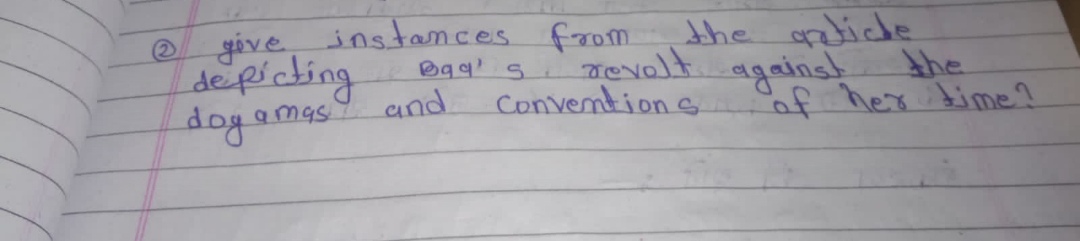 ② give instances from the article
depicting Baa's revolt against the
dogamas and conventions of her time?